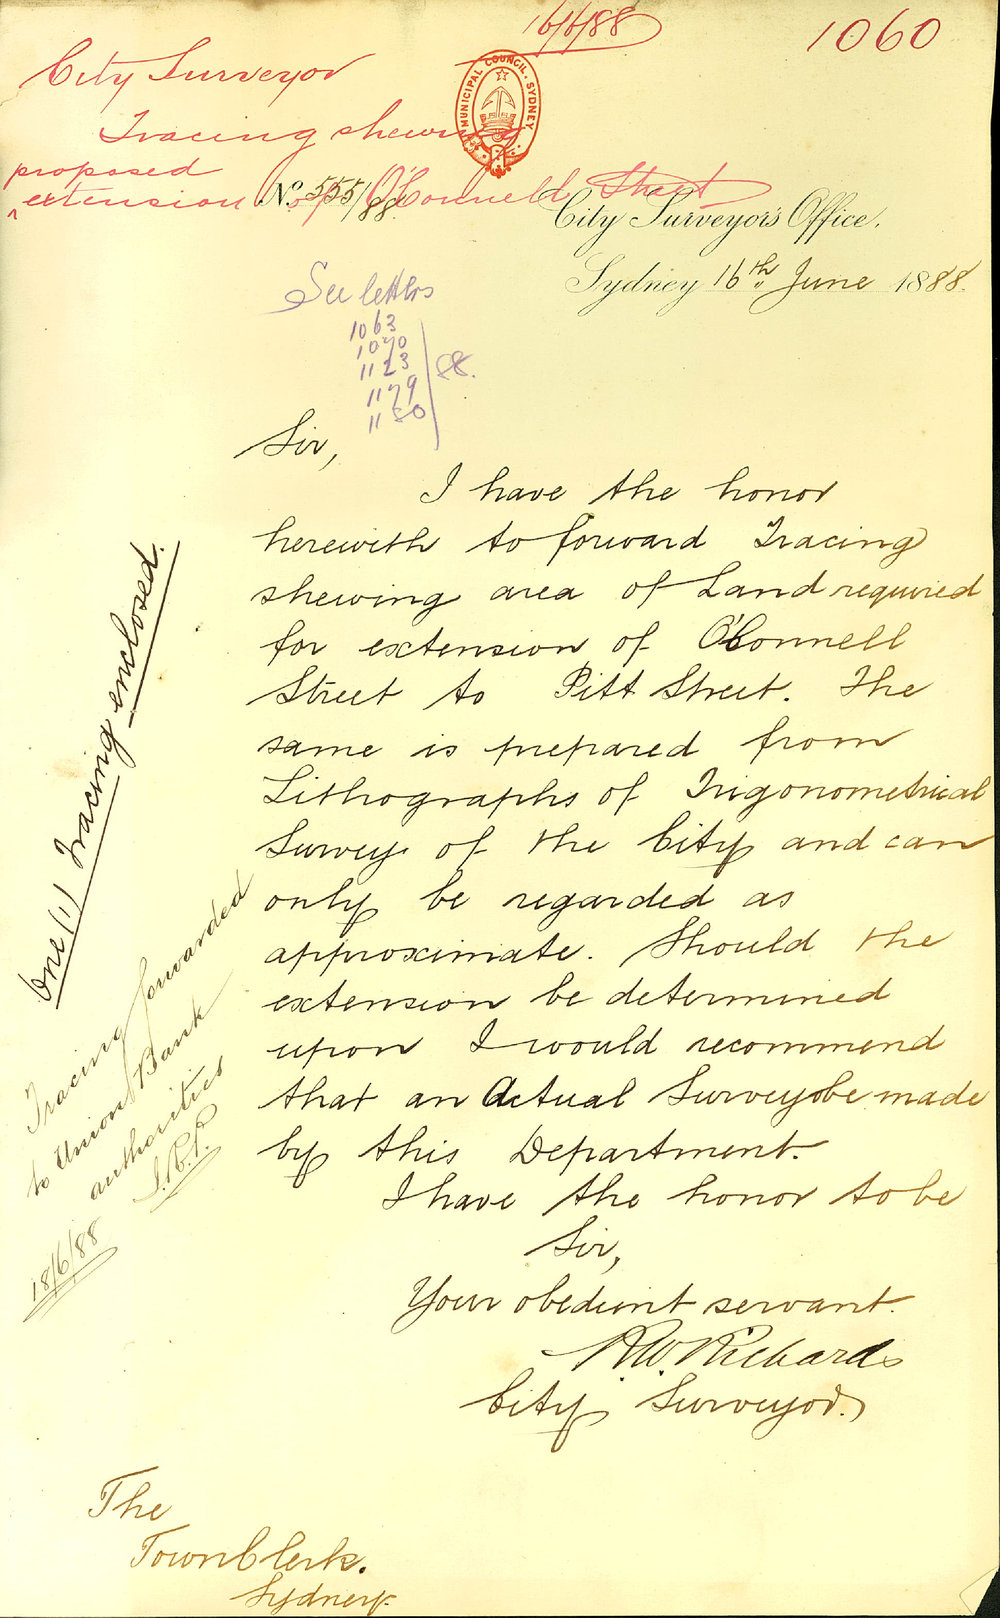 16/6/88
1060
City Surveyor
Tracing shewing
proposed
^ extension of O'Connell Street
MUNICIPAL COUNCIL. SYDNEY
No. 555/88
City Surveyor's Office.
Sydney 16th June 1888.
See letters
1063
1070
1123
1179
1180
88.
Sir,
I have the honor
herewith to forward Tracing
shewing area of Land required
for extension of O'Connell
Street to Pitt Street. The
same is prepared from
Lithographs of Trigonometrical
Survey of the City and can
only be regarded as
approximate. Should the
extension be determined
upon I would recommend
that an Actual Survey be made
by this Department.
I have the honor to be
Sir,
Your obedient servant.
R.W. Richards
City Surveyor.
One (1) Tracing enclosed.
Tracing forwarded
to Union Bank
authorities
18/6/88
The
Town Clerk.
Sydney.